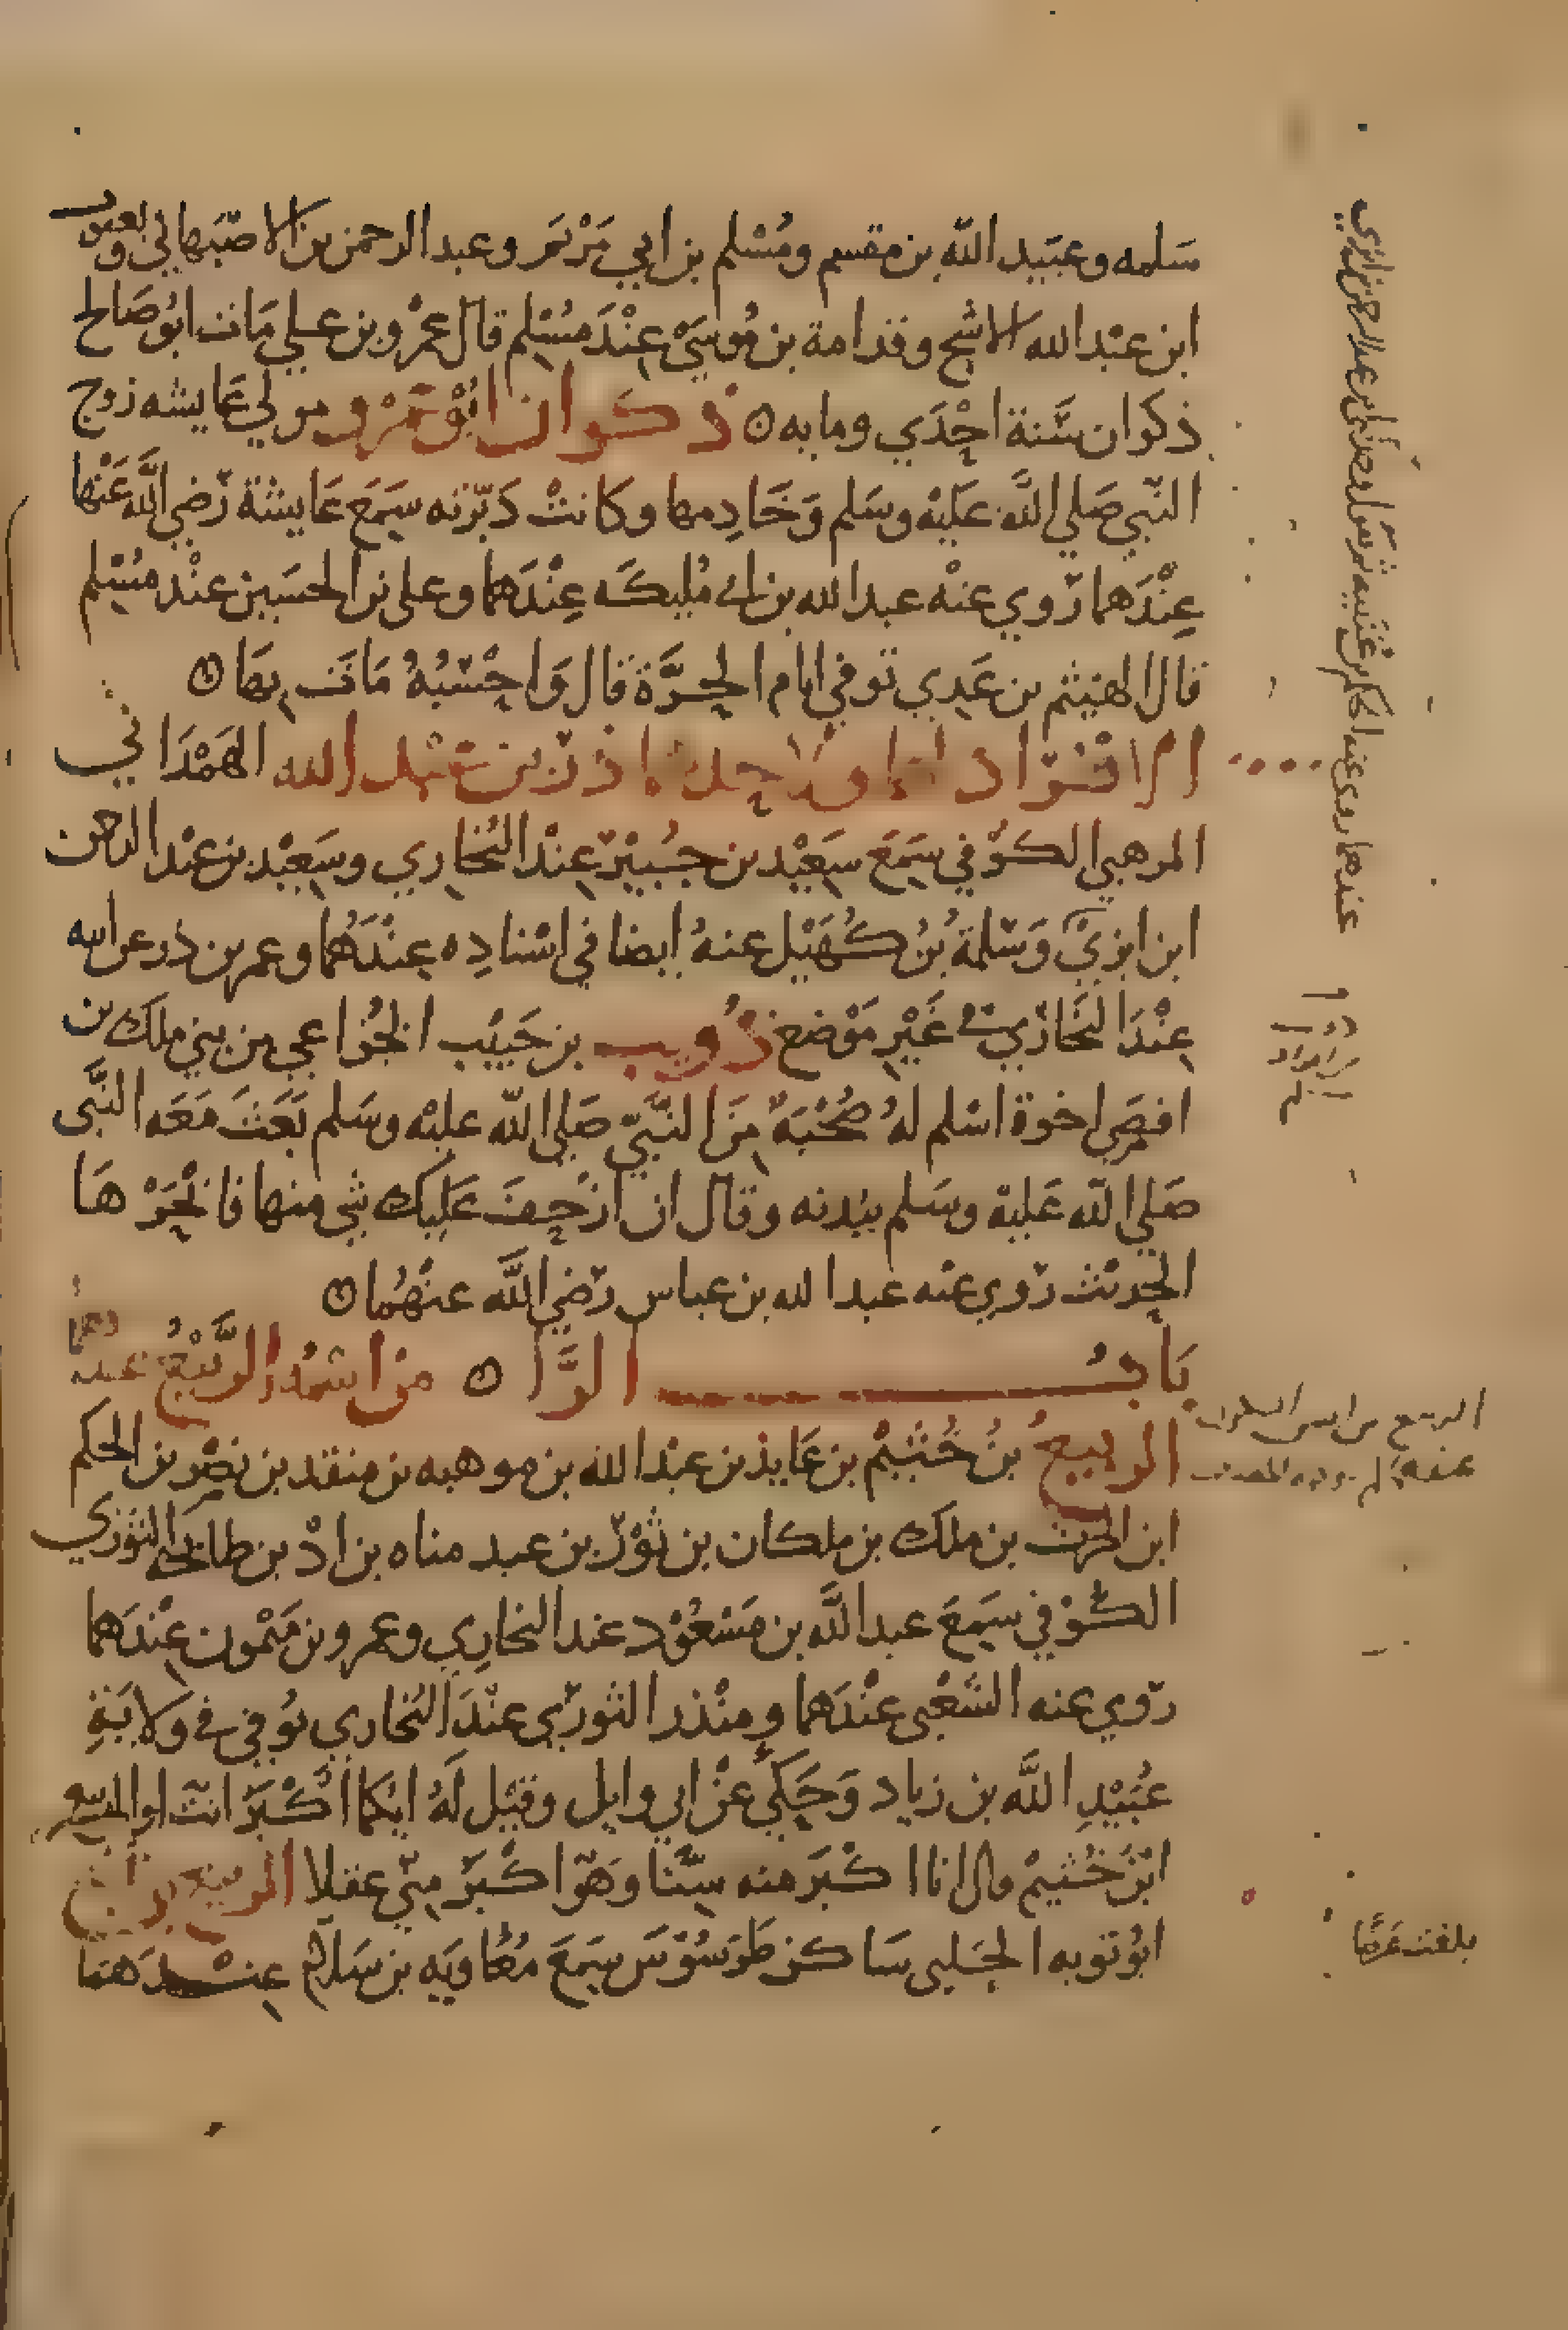 سلمه وعبيد الله بن مقسم ومسلم بن ابي مريم وعبد الرحمن بن الاصبهاني ويعقوب
ابن عبد الله الاشج وقدامة بن موسي عند مسلم قال عمرو بن علي مات ابو صالح
ذكوان سنة احدي ومايه ذكوان ابو عمرو مولي عايشه زوج
النبي صلي الله عليه وسلم وخادمها وكانت دبرته سمع عايشة رضي الله عنها
عندهما روي عنه عبد الله بن ابي مليكه عندهما وعلي بن الحسين عند مسلم
قال الهيثم بن عدي توفي ايام الحرة قال واحسبه مات بها
الافراد ذر بن عبد الله الهمداني
المرهبي الكوفي سمع سعيد بن جبير عند البخاري وسعيد بن عبد الرحمن
ابن ابزي وسلمة بن كهيل عنه ايضا في اسناده عندهما وعمر بن ذر عن ابيه
عند البخاري في غير موضع ذويب بن حبيب الخزاعي من بني ملك بن
افصي اخوة اسلم له صحبة من النبي صلي الله عليه وسلم بعث معه النبي
صلي الله عليه وسلم ببدنه وقال ان ازحف عليك شي منها فانحرها
الحديث روي عنه عبد الله بن عباس رضي الله عنهما
باب الرا من اسمه الربيع عندهما
الربيع بن خثيم بن عايذ بن عبد الله بن موهبه بن منقد بن نصر بن الحكم
ابن الحرث بن ملك بن ملكان بن ثور بن عبد مناه بن اد بن طابخه الثوري
الكوفي سمع عبد الله بن مسعود عند البخاري وعمرو بن ميمون عندهما
روي عنه الشعبي عندهما ومنذر الثوري عند البخاري توفي في ولاية
عبيد الله بن زياد وحكي عن ابي وايل وقيل له ايكما اكبر انت او الربيع
ابن خثيم قال انا اكبر منه سنا وهو اكبر مني عقلا الربيع بن نافع
ابو توبه الحلبي ساكن طرسوس سمع معاويه بن سلام عندهما
بلغت عرضا